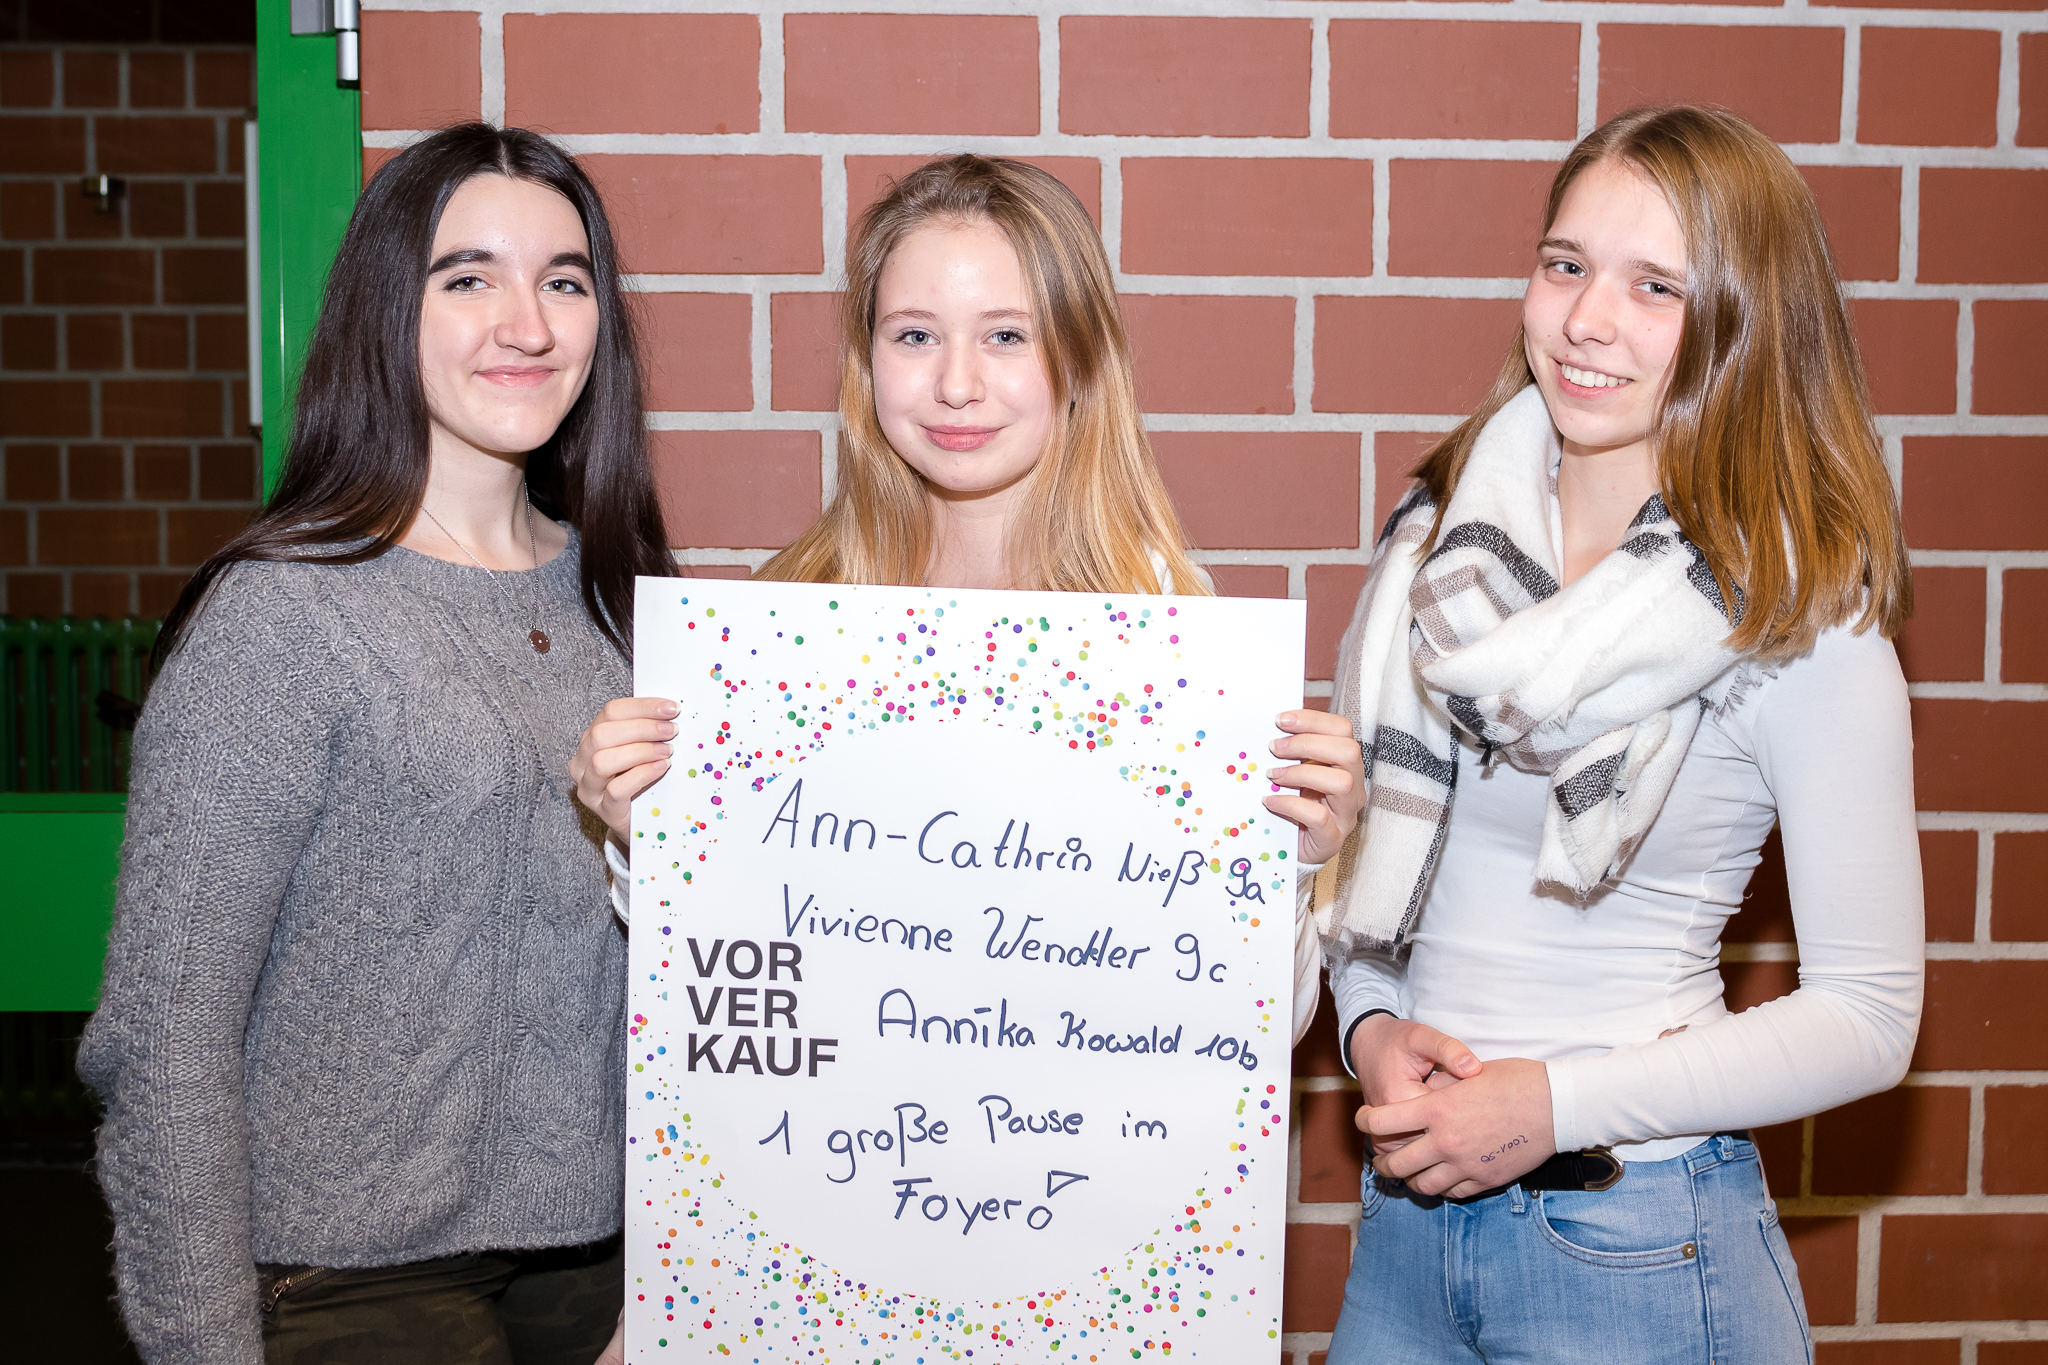 Ann-Cathrin Nieß 9a
Vivienne Wendkler 9c
VOR
VER
KAUF
Annika Kowald 10b
1 große Pause im
Foyer!